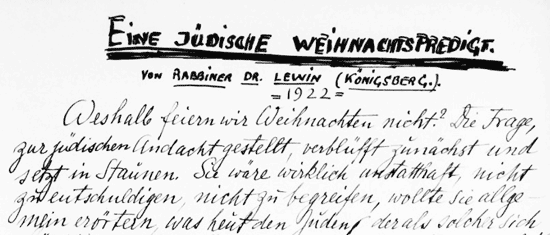 EINE JÜDISCHE WEIHNACHTSPREDIGT.
VON RABBINER DR. LEWIN (KÖNIGSBERG.).
=1922=
Weshalb feiern wir Weihnachten nicht? Die Frage,
zur jüdischen Andacht gestellt, verblüfft zunächst und
setzt in Staunen. Sie wäre wirklich unstatthaft, nicht
zu entschuldigen, nicht zu begreifen, wollte sie allge-
mein erörtern, was heut den Juden, der als solcher sich